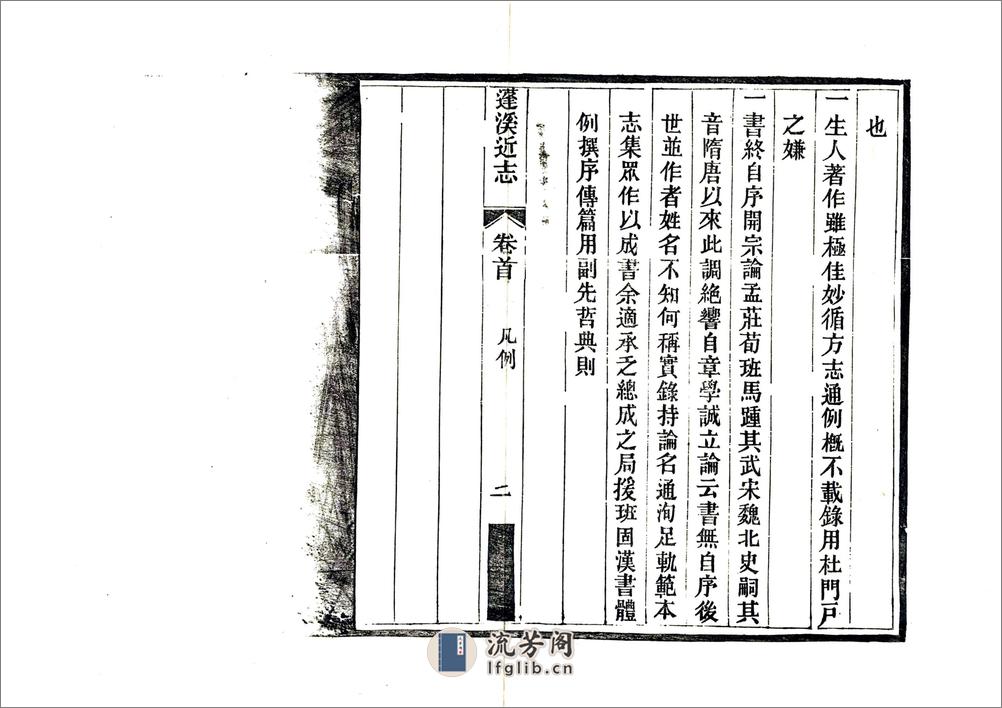 也
一生人著作雖極佳妙循方志通例概不載錄用杜門戶
之嫌
一書終自序開宗論孟莊荀班馬踵其武宋魏北史嗣其
音隋唐以來此調絕響自章學誠立論云書無自序後
世並作者姓名不知何稱實錄持論名通洵足軌範本
志集眾作以成書余適承乏總成之局援班固漢書體
例撰序傳篇用副先哲典則
蓬溪近志
卷首
凡例
二
流芳阁
lfglib.cn